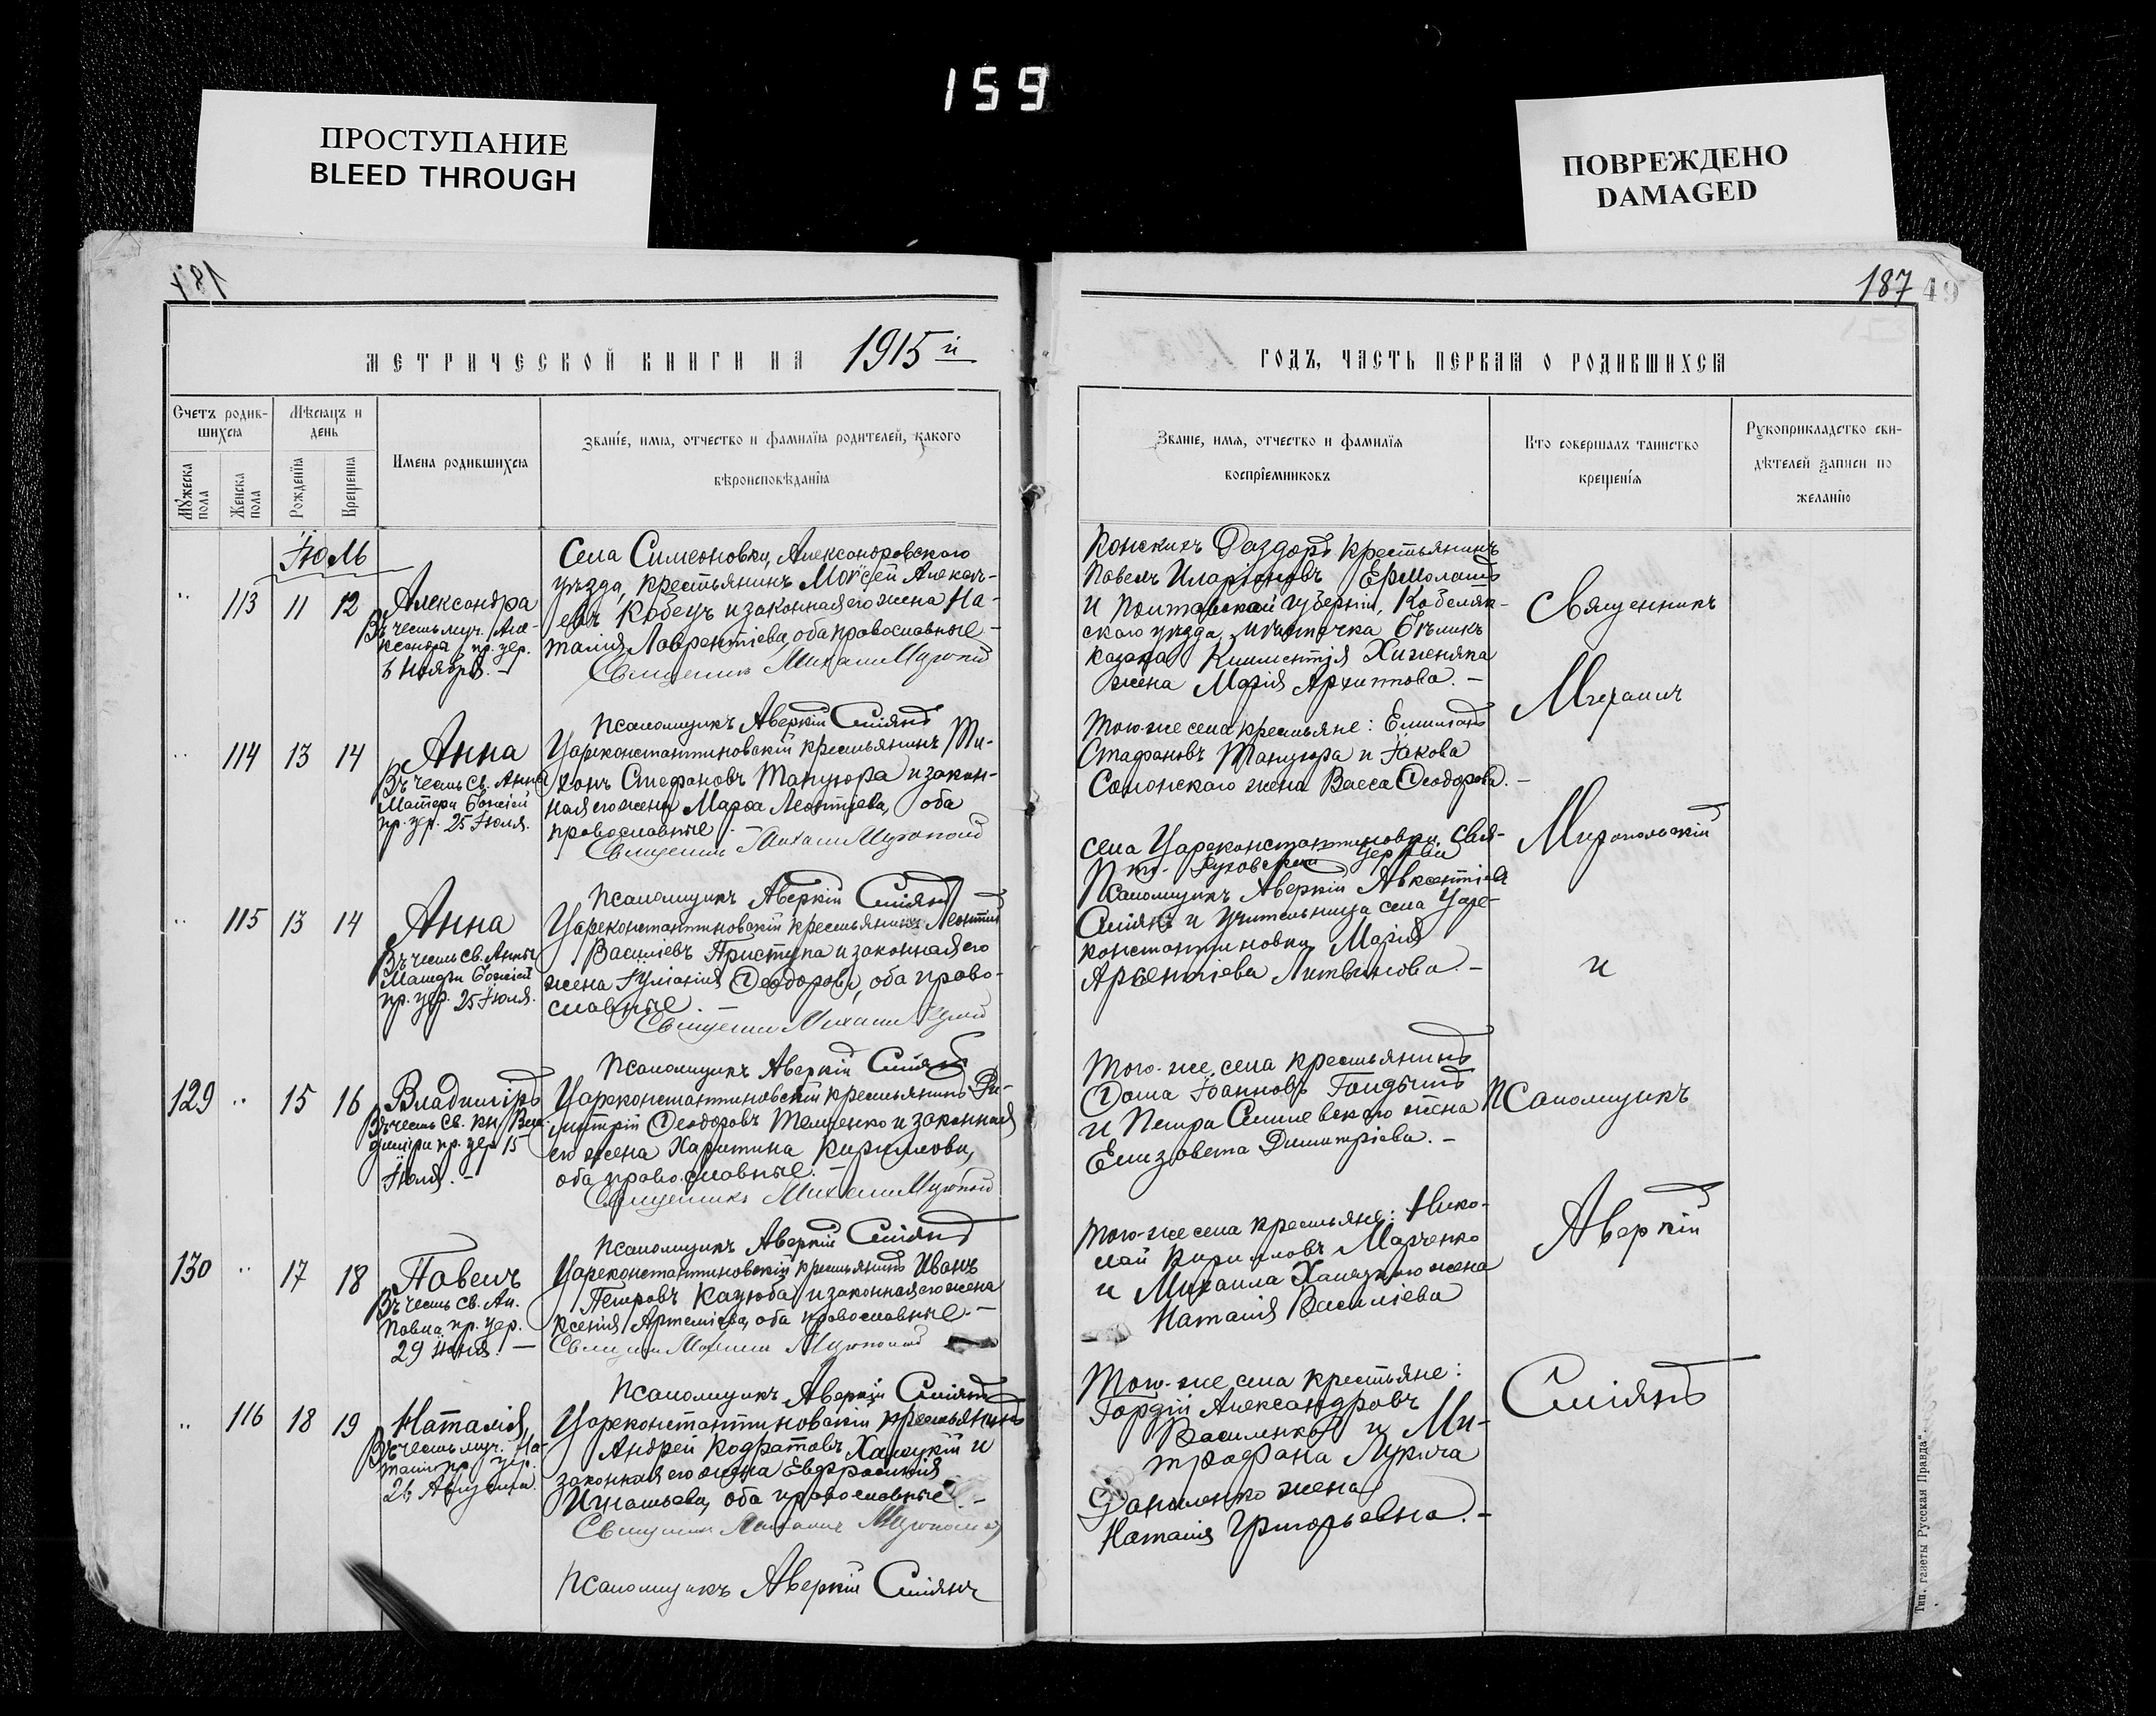 159
ПРОСТУПАНИЕ
BLEED THROUGH
ПОВРЕЖДЕНО
DAMAGED
187
187 49
МЕТРИЧЕСКОЙ КНИГИ НА 1915 й
ГОДЪ, ЧАСТЬ ПЕРВАЯ О РОДИВШИХСЯ
Счетъ родив-
шихся
Мѣсяцъ и
день
Мужеска
пола
Женска
пола
Рожденія
Крещенія
Имена родившихся
Званіе, имя, отчество и фамилія родителей, какого
вѣроисповѣданія
Званіе, имя, отчество и фамилія
воспріемниковъ
Кто совершалъ таинство
крещенія
Рукоприкладство сви-
дѣтелей записи по
желанію
Іюль
113 11 12 Александра
Въ честь муч. Але-
ксандры пр. цер.
6 Ноября. -
Села Симеоновки, Александровскаго
уѣзда, крестьянинъ Моѵсей Алексѣ-
евъ Кобецъ и законная его жена На-
талія Лаврентіева, оба православные -
Священникъ Михаилъ
Псаломщикъ Аверкій Сміянъ
Конскихъ Раздоръ крестьянинъ
Павелъ Иларіоновъ
и Полтавской губерніи, Кобеляк-
скаго уѣзда, мѣстечка Бѣликъ
казака Климентія Хиженяка
жена Марія Архиппова. -
114 13 14 Анна
Въ честь Св. Анны
Матери Божіей
пр. цер. 25 Іюля.
Цареконстантиновскій крестьянинъ Ти-
хонъ Стефановъ Танцюра и закон-
ная его жена Марѳа Леонтіева, оба
православные. -
Священникъ Михаилъ
Псаломщикъ Аверкій Сміянъ
Того-же села крестьяне: Емиліанъ
Стефановъ Танцюра и Іакова
Солонскаго жена Васса Ѳеодорова. -
115 13 14 Анна
Въ честь Св. Анны
Матери Божіей
пр. цер. 25 Іюля.
Цареконстантиновскій крестьянинъ Леонтій
Василіевъ Приступа и законная его
жена Іуліанія Ѳеодорова, оба право-
славные. -
Священникъ Михаилъ
Псаломщикъ Аверкій Сміянъ
села Цареконстантиновки, Свя-
то-Духовской церкви
Псаломщикъ Аверкій Авксентіевъ
Сміянъ и учительница села Царе-
константиновки Марія
Арсентіева Литвинова. -
129 15 16 Владиміръ
Въ честь Св. кн. Вла-
диміра пр. цер. 15
Іюля. -
Цареконстантиновскій крестьянинъ Ди-
митрій Ѳеодоровъ Темченко и законная
его жена Харитина Кириллова,
оба православные. -
Священникъ Михаилъ
Псаломщикъ Аверкій Сміянъ
Того-же села крестьянинъ
Ѳома Іоанновъ
и Петра жена
Елизавета Димитріева. -
130 17 18 Павелъ
Въ честь Св. Ап.
Павла пр. цер.
29 Іюня. -
Цареконстантиновскій крестьянинъ Иванъ
Петровъ Кацюба и законная его жена
Ксенія Артеміева, оба православные. -
Священникъ Михаилъ
Псаломщикъ Аверкій Сміянъ
Того-же села крестьяне: Нико-
лай Кирилловъ Марченко
и Михаила Халецкаго жена
Наталія Василіева
116 18 19 Наталія,
Въ честь муч. На-
таліи пр. цер.
26 Августа.
Цареконстантиновскій крестьянинъ
Андрей Кодратовъ Халецкій и
законная его жена Евфросинія
Игнатьева, оба православные. -
Священникъ Михаилъ
Псаломщикъ Аверкій Сміянъ
Того-же села крестьяне:
Гордій Александровъ
Василенко и Ми-
трофана Лукича
Даниленко жена
Наталія Григорьевна. -
Священникъ
Михаилъ
и
Псаломщикъ
Аверкій
Сміянъ
Тип. газеты Русская Правда".